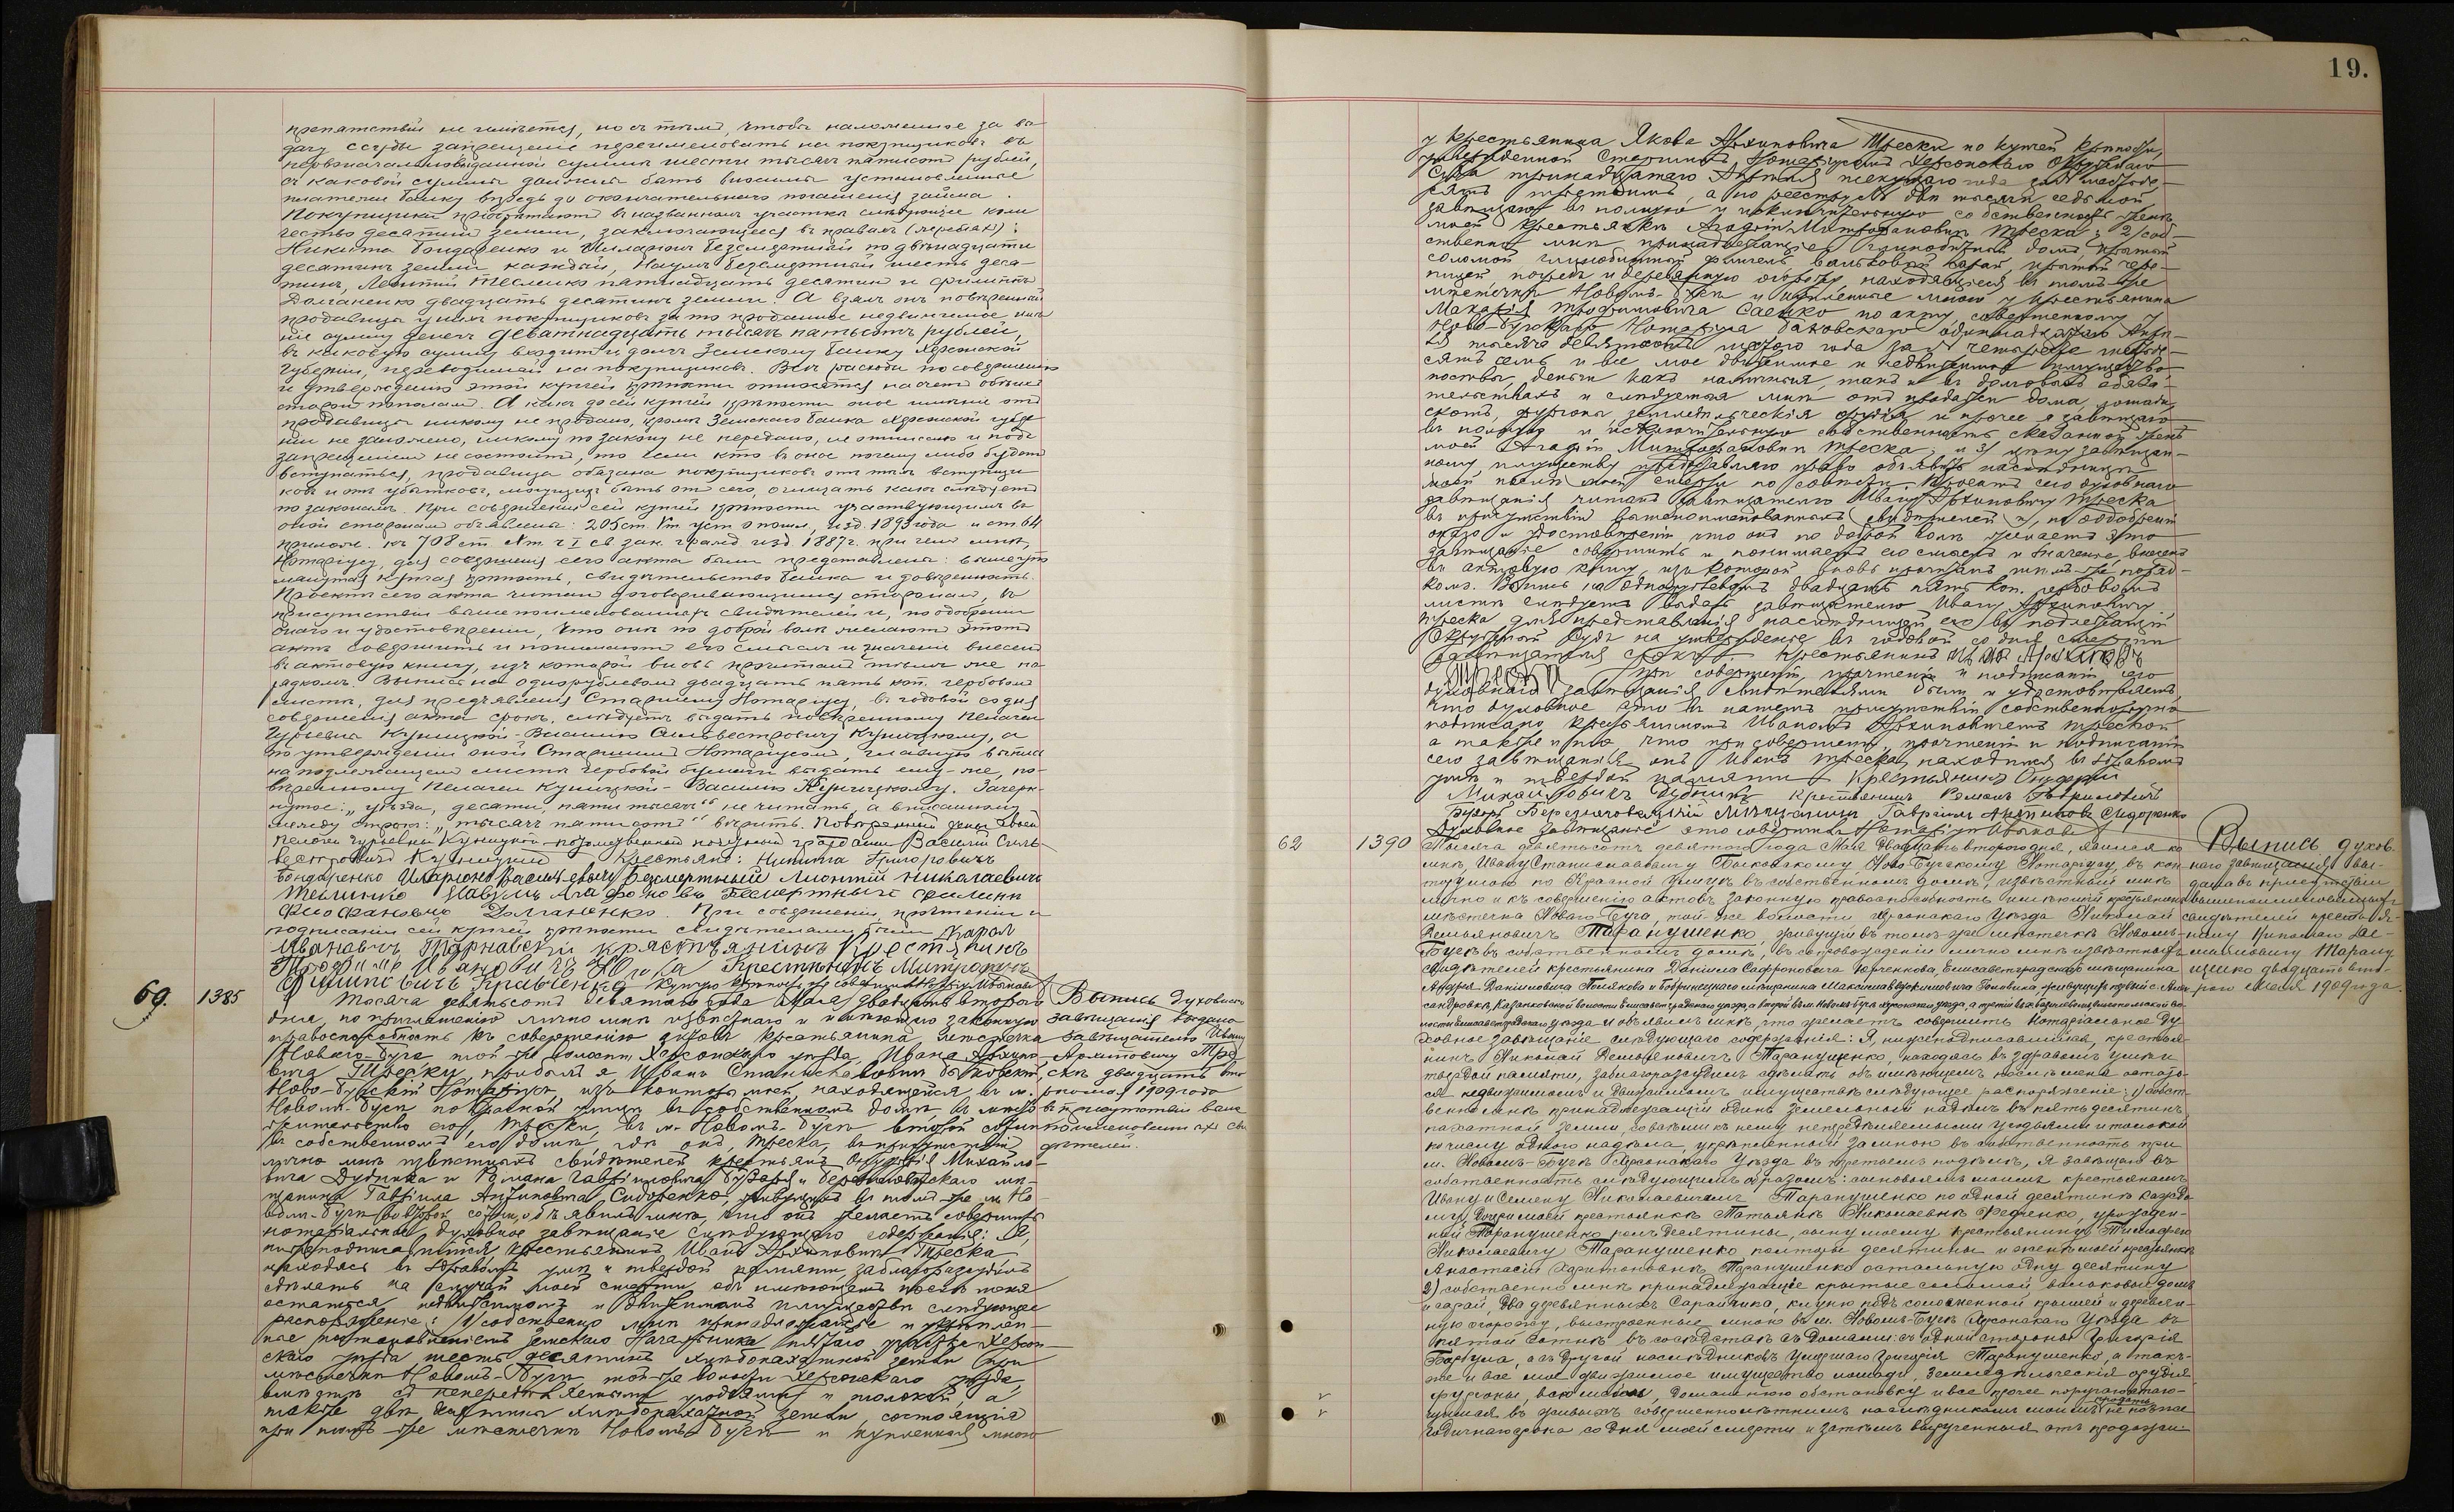 препятствій не имѣется, но съ тѣмъ, чтобы наложенное за вы
дачу ссуды запрещеніе переименовать на покупщиковъ въ
первоначальновыданной суммѣ шести тысячъ пятисотъ рублей,
съ каковой суммы должны быть вносимы установленные
платежи банку впредь до окончательнаго погашенія займа.
Покупщики пріобрѣтаютъ въ названномъ участкѣ слѣдующее коли
чество десятинъ земли, заключающееся въ правахъ
Никита Бондаренко и Илларіонъ Безсмертный по двѣнадцати
десятинъ земли каждый, Наумъ Безсмертный шесть деся-
тинъ, Леонтій Тесленко пятнадцать десятин и Филиппъ
Долганенко двадцать десятинъ земли. А взялъ онъ повѣренный
продавицы у нихъ покупщиковъ за то проданное недвижимое имѣ
ніе сумму денегъ девятнадцать тысячъ пятьсотъ рублей,
въ каковую сумму входитъ и долгъ Земскому банку Херсонской
Губерніи, переводимый на покупщиковъ. Всѣ расходы по совершенію
и утвержденію этой купчей крѣпости относятся на счетъ обѣихъ
сторонъ пополамъ. А какъ до сей купчей крѣпости оное имѣніе отъ
продавицы никому не продано, кромѣ Земскаго банка Херсонской губер
ніи не заложено, никому по закону не передано, не отписано и подъ
запрещеніемъ не состоитъ, то если кто въ оное почему либо будетъ
вступаться, продавица обязана покупщиковъ отъ тѣхъ вступщи
ковъ и отъ убытковъ, могущихъ быть отъ сего, очищать какъ слѣдуетъ
по законамъ. При совершеніи сей купчей крѣпости участвующимъ въ
оной сторонамъ объявлены: 205 ст. уст. о пошл. изд. 1893 года и ст. 64
прилож. къ 708 ст. X т. ч I св. зак. гражд. изд. 1887 г. при чемъ мнѣ,
Нотаріусу, для совершенія сего акта были представлены: вышеупо
мянутая купчая крѣпость, свидѣтельство банка и довѣренность.
Проектъ сего акта читанъ договаривающимся сторонамъ, въ
присутствіи вышепоименованныхъ свидѣтелей и, по одобреніи
онаго и удостовѣреніи, что они по доброй волѣ желаютъ этотъ
актъ совершить и понимаютъ его смыслъ и значеніе внесенъ
въ актовую книгу, изъ которой вновь прочитанъ тѣмъ же по
рядкомъ. Выпись на однорублевомъ двадцать пять коп. гербовомъ
листѣ, для предъявленія Старшему Нотаріусу, въ годовой со дня
совершенія акта срокъ, слѣдуетъ выдать повѣренному Пелагеи
Гурьевны Куницкой - Василію Сильвестровичу Куницкому, а
по утвержденіи оной Старшимъ Нотаріусомъ, главную выпись
на подлежащемъ листѣ гербовой бумаги выдать ему-же, по-
вѣренному Пелагеи Куницкой - Василію Куницкому. Зачерк-
нутое: „уѣзда, десяти, пяти тысячъ“ не читать, а вписанному
между строкъ: „тысячъ пятисотъ“ вѣрить. Повѣренный жены своей
Пелагеи Гурьевны Куницкой - потомственный почетный гражданинъ Василій Силь-
вестровичъ Куницкій Крестьяне: Никита Григоровичъ
Бондаренко Иларіонъ Васильевичъ Безсмертный Лионтій Никалаевичъ
Теслинко Наумъ Безмертный Филипп
Долганенко. При совершеніи, прочтеніи и
подписаніи сей купчей крѣпости свидѣтелями были Карол
Ивановичъ Тарнавский крястьянинъ Крестянинъ
Трофимъ Ивановичъ Крестьянинъ Митрофанъ
Филиповичъ Кравченко Купчую крѣпость эту совершилъ Нотаріусъ Быковскій
69. 1385 Тысяча девятьсотъ девятаго года Мая двадцать второго
дня, по приглашенію лично мнѣ извѣстнаго и имѣющаго законную
правоспособность къ совершенію актовъ крестьянина мѣстечка
Новаго-Буга той же волости Херсонскаго уѣзда, Ивана Архипо-
вича Трески, прибылъ я Иванъ Станиславовичъ Быковскій,
Ново-Бугскій Нотаріусъ, изъ конторы моей, находящейся въ м.
Новомъ-Бугѣ по Красной улицѣ въ собственномъ домѣ, въ мѣсто
жительство его, Трески, въ м. Новомъ-Бугѣ второй сотни
въ собственномъ его домѣ, гдѣ онъ, Треска, въ присутствіи
лично мнѣ извѣстныхъ свидѣтелей крестьянъ Онуфрія Михайло-
вича Дубника и Романа Гавриловича Бузаря и Бериславскаго мѣ-
щанина Гавріила Антиповича Сидоренко, живущихъ въ томъ же м. Но
вомъ-Бугѣ второй сотни, объявилъ мнѣ, что онъ желаетъ совершить
нотаріальное духовное завѣщаніе слѣдующаго содержанія: Я,
нижеподписавшійся, крестьянинъ Иванъ Архиповичъ Треска
находясь въ здравомъ умѣ и твердой памяти, заблагоразсудилъ
сдѣлать на случай моей смерти объ имѣющемъ послѣ меня
остаться недвижимомъ и движимомъ имуществѣ слѣдующее
распоряженіе: 1) собственно мнѣ принадлежащіе и укрѣплен-
ные постановленіемъ Земскаго Начальника пятаго участка Херсон-
скаго уѣзда, шесть десятинъ хлѣбопахатной земли при
мѣстечкѣ Новомъ-Бугѣ, той-же волости Херсонскаго уѣзда,
вмѣстѣ съ непередѣляемыми угодьями и толокой, а
также двѣ десятины хлѣбопахатной земли, состоящія
при томъ-же мѣстечкѣ Новомъ-Бугѣ и купленныя мною
Выпись духовнаго
завѣщанія выдана
завѣщателю Ивану
Архиповичу Тре
скѣ двадцать вто
рого мая 1909 года
въ присутствіи выше
поименованныхъ сви
дѣтелей.
19.
у крестьянина Якова Архиповича Трески по купчей крѣпости,
утвержденной Старшимъ Нотаріусомъ Херсонскаго Окружнаго
Суда тринадцатаго Апрѣля текущаго года за шестьде-
сятъ третьимъ, а по реестру двѣ тысячи седьмой
завѣщаю въ полную и исключительную собственность женѣ
моей крестьянкѣ Агафіи Митрофановнѣ Треска; 2) соб-
ственно мнѣ принадлежащіе глинобитный домъ, крытый
соломой глинобитный флигель вальковой сарай, крытый чере-
пицей погребъ и деревянную огорожу, находящіеся въ томъ-же
мѣстечкѣ Новомъ-Бугѣ и купленные мною у крестьянина
Макарія Трофимовича Саенко по акту, совершенному у
Ново-Бугскаго Нотаріуса Быковскаго одиннадцатаго Апрѣ-
ля тысяча девятьсотъ года за четыреста шестьде-
сятъ семь и все мое движимое и недвижимое имущество
постройки, деньги какъ наличныя, такъ и въ долговыхъ обяза-
тельствахъ и слѣдуемыя мнѣ отъ продажи дома, лошади,
скотъ, фургоны, земледѣльческія орудія и прочее я завѣщаю
въ полную и исключительную собственность сказанной женѣ
моей Агафіи Митрофановнѣ Треска; и 3) цѣну завѣщан-
ному имуществу предоставляю право объявить наслѣдницѣ
моей послѣ моей смерти по совѣсти. Проектъ сего духовнаго
завѣщанія читанъ завѣщателю Ивану Архиповичу Треска
въ присутствіи вышепоименованныхъ свидѣтелей и, по одобреніи
онаго и удостовѣреніи, что онъ по доброй волѣ желаетъ это
завѣщаніе совершить и понимаетъ его смыслъ и значеніе, внесенъ
въ актовую книгу, изъ которой вновь прочтенъ тѣмъ-же поряд-
комъ. Выпись на однорублевомъ двадцать пять коп. гербовомъ
листѣ слѣдуетъ выдать завѣщателю Ивану Архиповичу
Треска для представленія наслѣдницей его въ подлежащій
Окружной Судъ на утвержденіе въ годовой со дня смерти
завѣщателя срокъ. Крестьянинъ Иван Архипов
Треска При совершеніи, прочтеніи и подписаніи сего
духовнаго завѣщанія свидѣтелями были и удостовѣряемъ,
что духовное это въ нашемъ присутствіи собственноручно
подписано крестьяниномъ Иваномъ Архиповичемъ Треской
а также и то, что при совершеніи, прочтеніи и подписаніи
сего завѣщанія онъ Иванъ Треска находился въ здравомъ
умѣ и твердой памяти. Крестьянинъ Онуфрій
Михайловичъ Дубникъ Крестьянинъ Романъ Гавриловичъ
Бузарь Бериславскій Мѣщанинъ Гаврілъ Антиповъ Сидоренко
Духовное завѣщаніе это совершилъ Нотаріусъ Быковскій
62 1390 Тысяча девятьсотъ девятаго года Мая двадцать второго дня, явился ко
мнѣ, Ивану Станиславовичу Быковскому Ново-Бугскому Нотаріусу, въ кон
тору мою по Красной улицѣ въ собственномъ домѣ, извѣстный мнѣ
лично и къ совершенію актовъ законную правоспособность имѣющій крестьянинъ
мѣстечка Новаго-Буга, той же волости Херсонскаго Уѣзда Николай
Демьяновичъ Таранушенко, живущій въ томъ-же мѣстечкѣ Новомъ-
Бугѣ въ собственномъ домѣ, въ сопровожденіи лично мнѣ извѣстныхъ
свидѣтелей крестьянина Даніила Сафроновича Юрченкова, Елисаветградскаго мѣщанина
Андрея Даниловича Полякова и Бобринецкаго мѣщанина Максимиліана живущихъ первый с. Алек
сандровкѣ, Казанковской волости Елисаветградскаго уѣзда, а второй въ м. Новомъ-Бугѣ Херсонскаго уѣзда, а третій во
лости Елисаветградскаго уѣзда и объявилъ мнѣ, что желаетъ совершить нотаріальное ду
ховное завѣщаніе слѣдующаго содержанія: Я, нижеподписавшійся, крестья-
нинъ Николай Демьяновичъ Таранушенко, находясь въ здравомъ умѣ и
твердой памяти, заблагоразсудилъ сдѣлать объ имѣющемъ послѣ меня остать-
ся недвижимомъ и движимомъ имуществѣ слѣдующее распоряженіе: 1) собст-
венно мнѣ принадлежащій одинъ земельный надѣлъ въ пять десятинъ
пахатной земли, со всѣми къ нему непередѣляемыми угодьями и толокой
по числу одного надѣла, укрѣпленный за мною въ собственность при
м. Новомъ-Бугѣ Херсонскаго Уѣзда въ третьемъ подѣлѣ, я завѣщаю въ
собственность слѣдующимъ образомъ: сыновьямъ моимъ крестьянамъ
Ивану и Семену Николаевичамъ Таранушенко по одной десятинѣ каждо
му, Дочери моей крестьянкѣ Татьянѣ Николаевнѣ Федченко, урожден-
ной Таранушенко полъ десятины, сыну моему крестьянину Тимофею
Николаевичу Таранушенко полторы десятины и женѣ моей крестьянкѣ
Анастасіи Харитоновнѣ Таранушенко остальную одну десятину
2) собственно мнѣ принадлежащіе крытые соломой вальковый домъ
и сарай, два деревянныхъ Сарайчика, клуню подъ соломенной крышей и деревян-
ную огорожу, выстроенные мною въ м. Новомъ-Бугѣ Херсонскаго Уѣзда въ
пятой сотнѣ въ сосѣдствѣ съ домами: съ одной стороны Григорія
Барбула, а съ другой наслѣдниковъ умершаго Григорія Таранушенко, а так-
же и все мое движимое имущество лошади, земледѣльческія орудія
фургоны, домашнюю обстановку и все прочее поручаю остаю-
щимся въ живыхъ совершеннолѣтнимъ наслѣдникамъ моимъ продать не позже
годичнаго срока со дня моей смерти и затѣмъ вырученныя отъ продажи
Выпись духов-
наго завѣщанія вы-
дана въ присутствіи
вышепоименованныхъ
свидѣтелей крестья-
нину Николаю Де-
мьяновичу Тарану
шенко двадцать вто-
рого мая 1909 года.